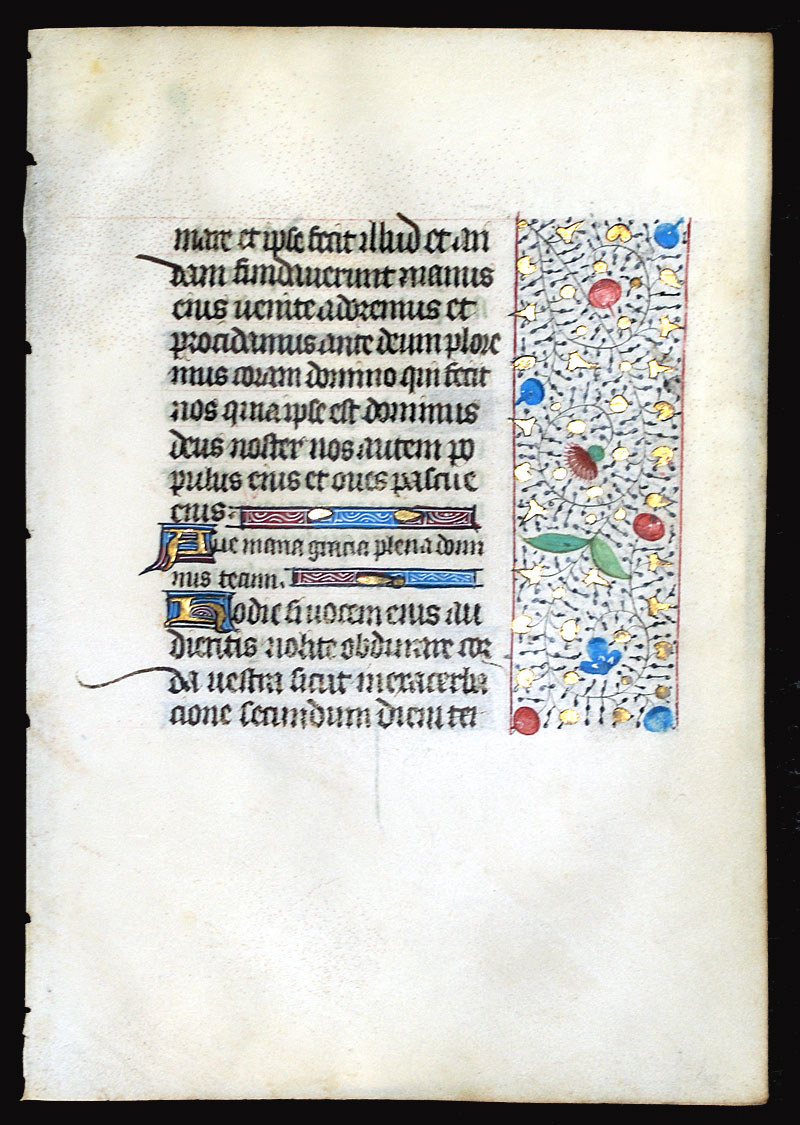 mare et ipse fecit illud et ari
dam fundaverunt manus
eius uenite adoremus et
procidamus ante deum plore
mus coram domino qui fecit
nos quia ipse est dominus
deus noster nos autem po
pulus eius et oues pascue
eius.
Aue maria gracia plena domi
nus tecum.
Hodie si uocem eius au
dieritis nolite obdurare cor
da uestra sicut in exacerba
cione secundum diem tẽ